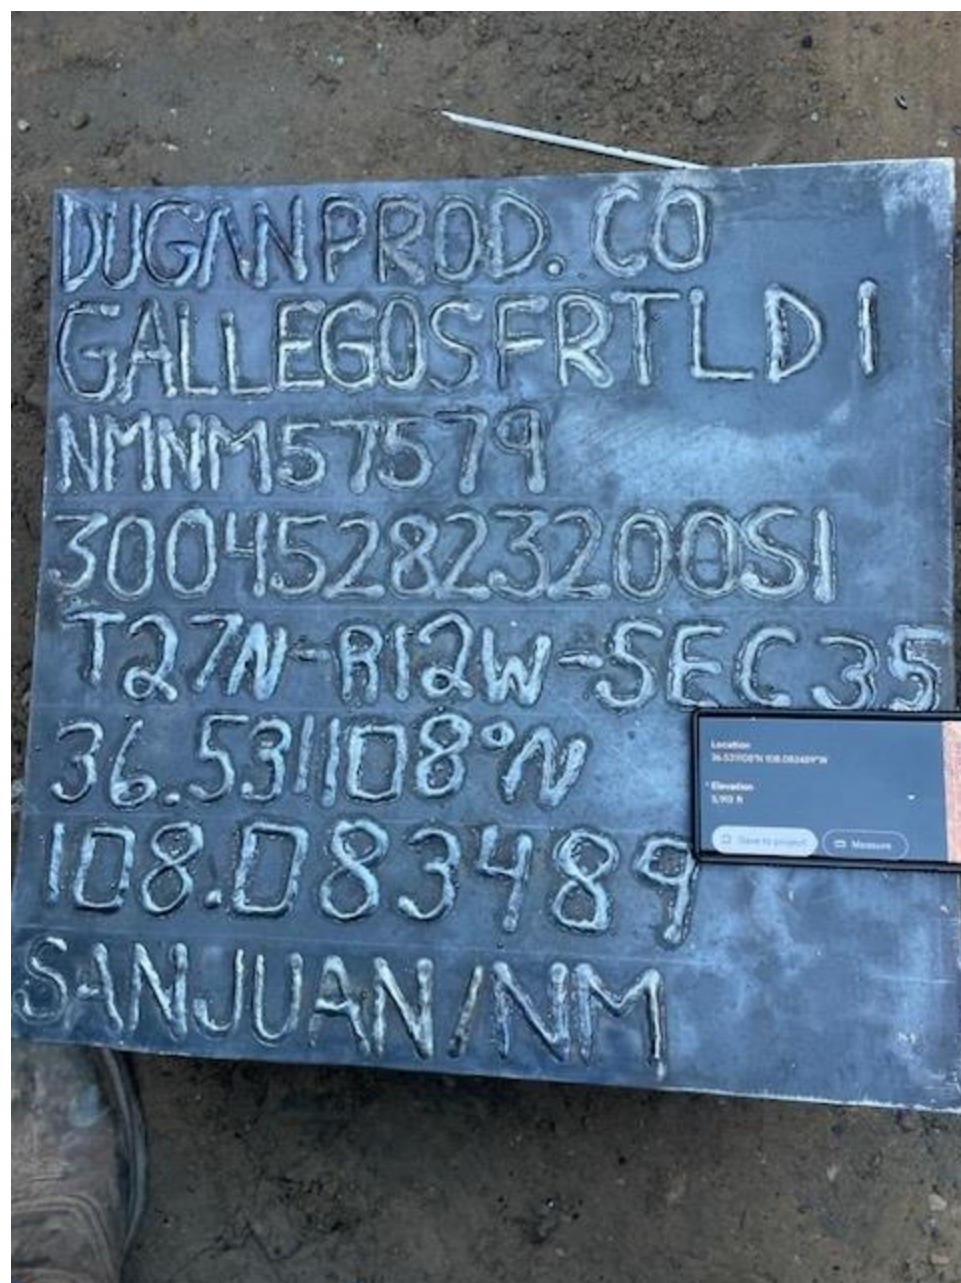 DUGAN PROD. CO
GALLEGOS FRTLD 1
NMNM57579
300452823200S1
T27N-R12W-SEC 35
36.531108°N
108.083489
SAN JUAN/NM
Location
36.531108°N 108.083489°W
Elevation
5,913 ft
Save to project
Measure